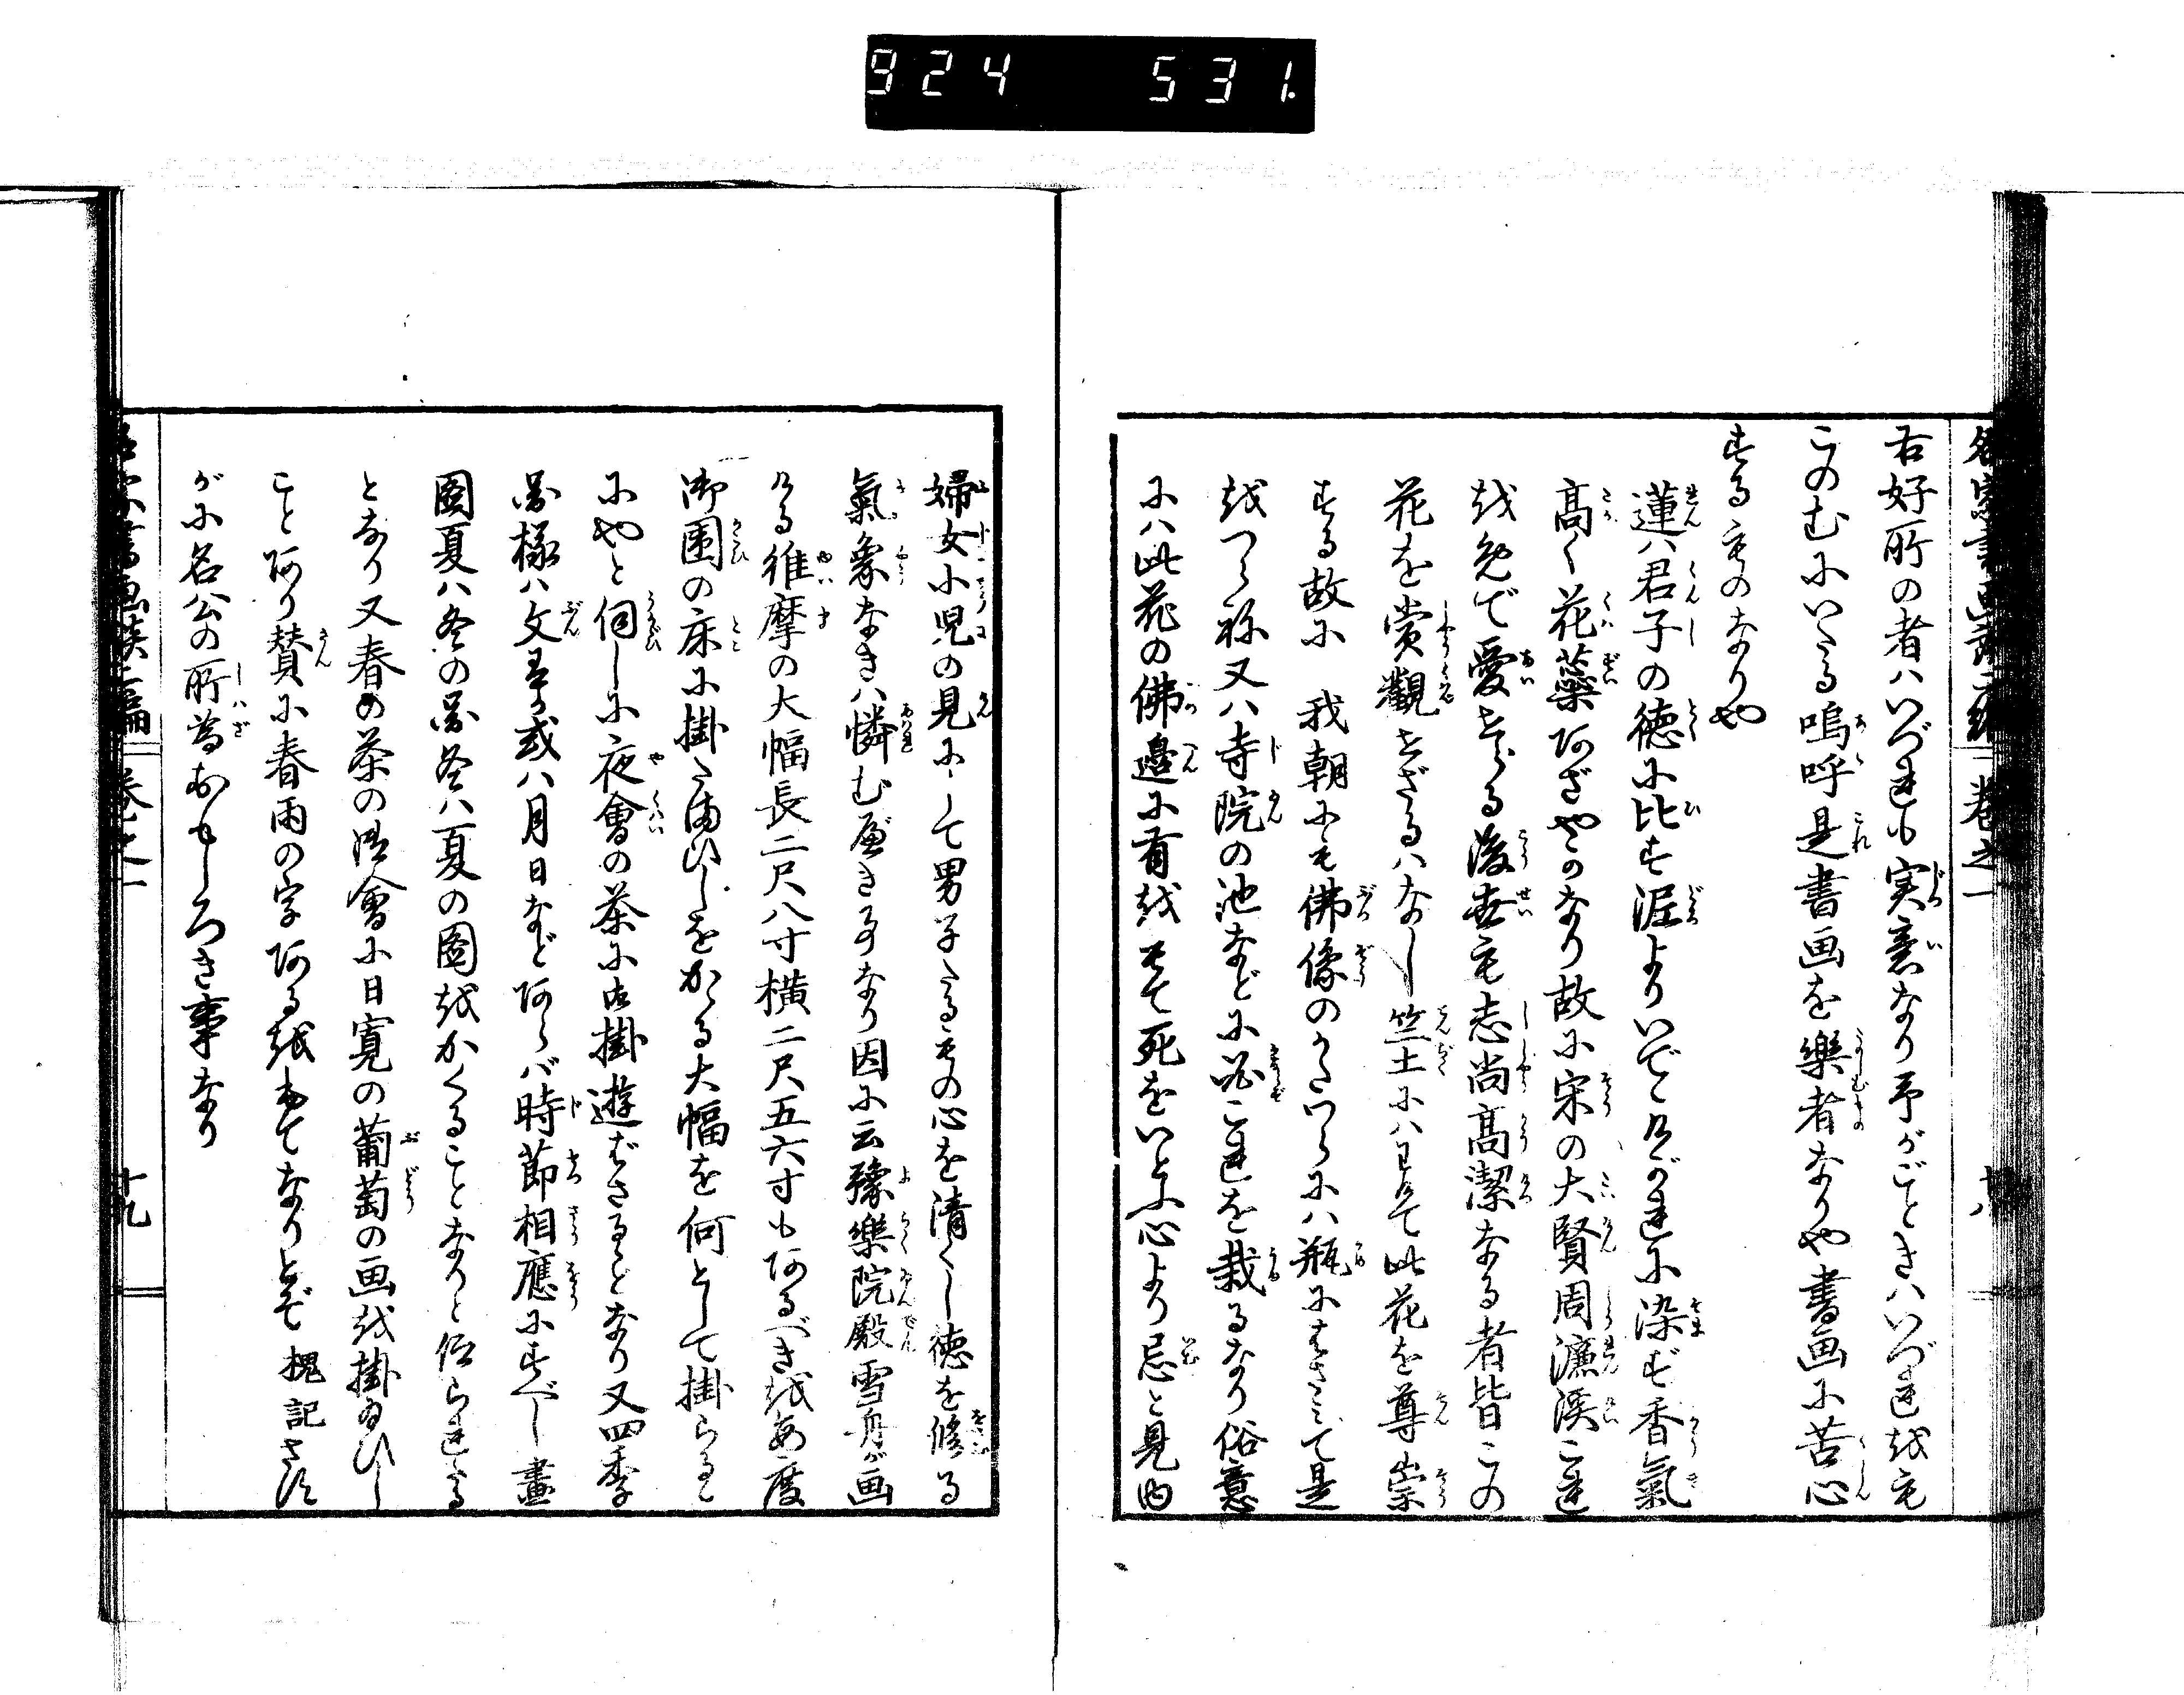 924 531.
名家書画談二編 巻之一 十八
右好所の者ハいづれも実意なり予がごときハいづれをも
このむにいたる嗚呼是書画を樂者なりや書画に苦心
するものなりや
蓮ハ君子の徳に比す泥よりいでゝけがれに染ず香氣
高く花藥あざやかなり故に宋の大賢周濂溪これ
を免で愛せらる後世も志尚高潔なる者皆この
花を賞觀せざるハなし竺土にハわけて此花を尊崇
する故に 我朝にも佛像のかたハらにハ瓶にさゝみて是
をつらね又ハ寺院の池などに必これを栽るなり俗意
にハ此花の佛邉に有をもて死をいとふ心より忌と見ゆ
婦女小児の見にして男子たるもの心を清くし徳を修る
氣象なきハ憐むべき事なり因に云豫樂院殿雪舟が画
ける維摩の大幅長二尺八寸横二尺五六寸もあるべきをあ度
御囲の床に掛たまひしをかゝる大幅を何として掛らるゝ
にやと伺しに夜會の茶に古掛遊ばさるゝとなり又四季
圖様ハ文字或ハ月日などあらバ時節相應にすべし畫
圖夏ハ冬の圖冬ハ夏の圖をかくることなりと仰られたる
となり又春の茶の御會に日寛の葡萄の画を掛給ひし
ことあり賛に春雨の字あるをもてなりとぞ 槐記さば
かに名公の所為おもしろき事なり
名家書画談二編 巻之一 十九